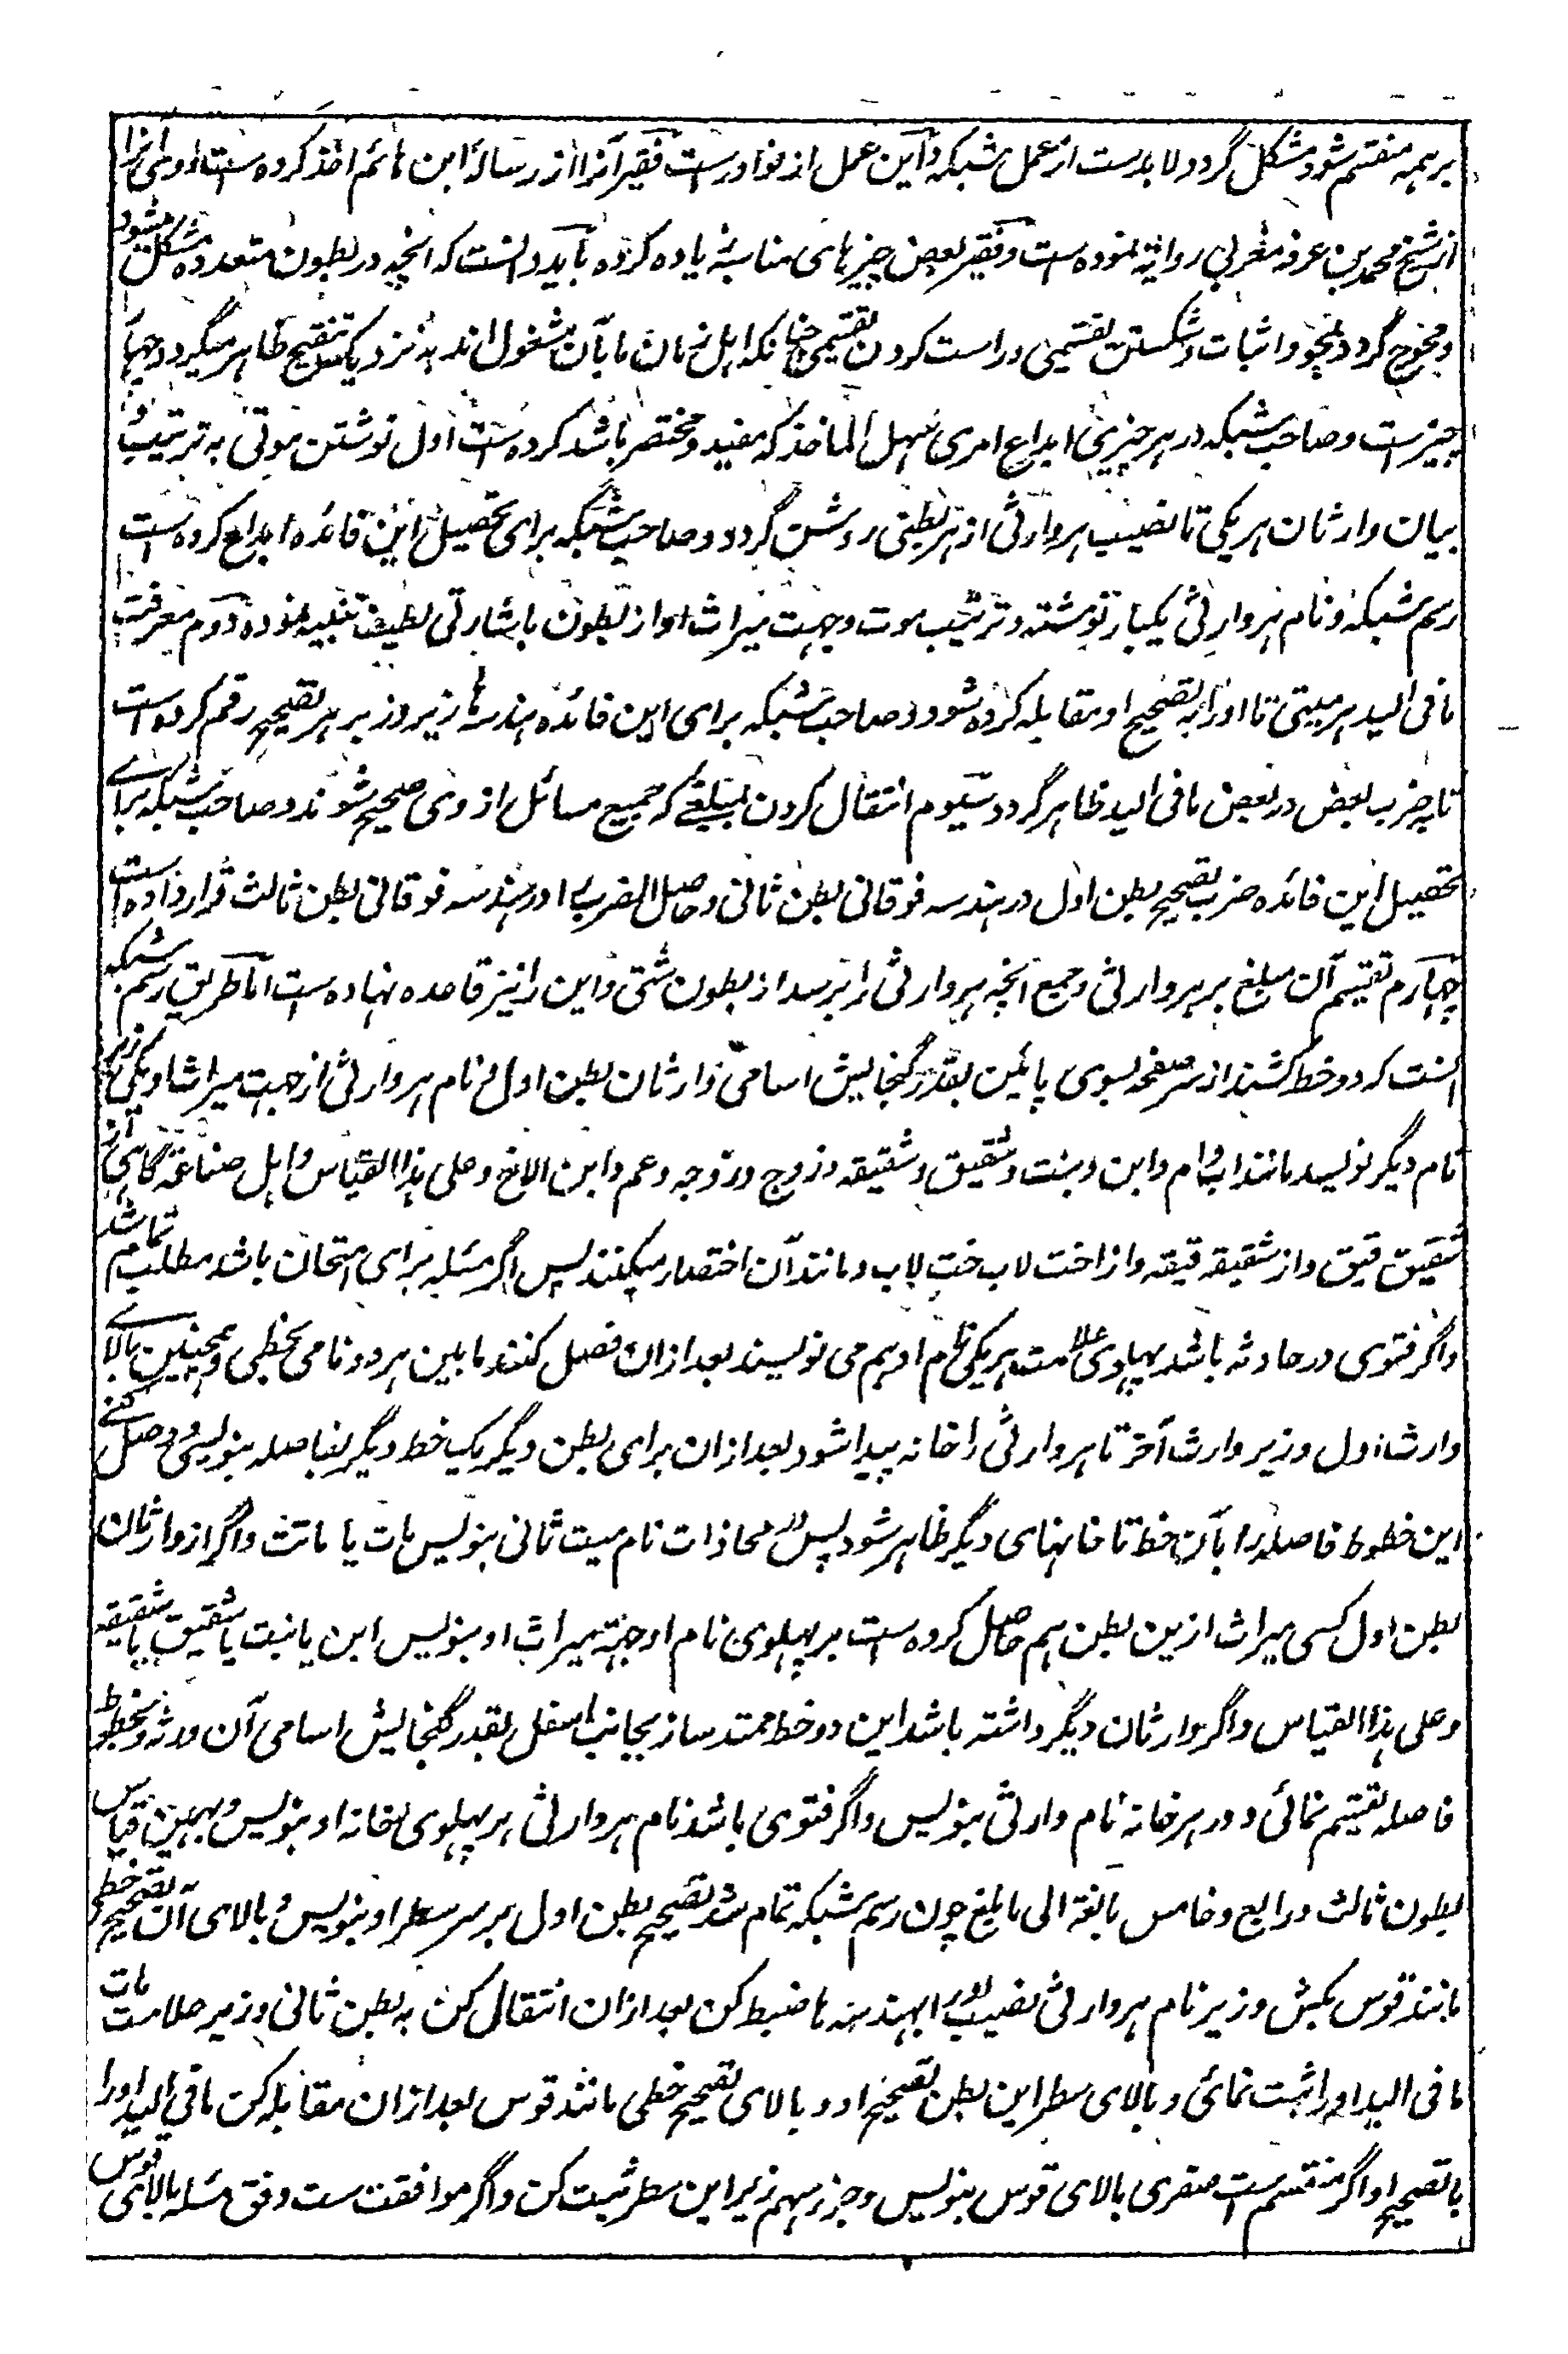 بر همه منقسم شود مشکل گردد لا بدست از عمل شبکه و این عمل از نوادرست فقیر آنرا از رساله ابن هائم اخذ کرده ست و وی آنرا
از شیخ محمد بن عرفه مغربی روایة نموده ست و فقیر بعض چیزهای مناسبه زیاده کرده باید دانست که آنچه در بطون متعدده مشکل میشود
و محوج گردد بمحو و اثبات و شکستن تقسیمی و راست کردن تقسیمی چنانکه اهل زمان ما بآن مشغول اند بنزدیک تنقیح ظاهر میگردد چهار
چیزست و صاحب شبکه در هر چیزی ابداع امری سهل الماخذ که مفید و مختصر باشد کرده ست اول نوشتن موتی به ترتیب و
بیان وارثان هر یکی تا نصیب هر وارثی از هر بطنی روشن گردد و صاحب شبکه برای تحصیل این فائده ابداع کرده ست
رسم شبکه و نام هر وارثی یکبار نوشته و ترتیب موت و جهت میراث او از بطون باشارتی لطیف تنبیه نموده دوم معرفت
ما فی الید هر میتی تا او را به تصحیح او مقابله کرده شود و صاحب شبکه برای این فائده هندسه ها زیر و زبر هر تصحیح رقم کرده است
تا ضرب بعض در بعض ما فی الید ظاهر گردد سیوم انتقال کردن بمبلغے که جمیع مسائل از وی صحیح شوند و صاحب شبکه برائے
تحصیل این فائده ضرب تصحیح بطن اول در هندسه فوقانی بطن ثانی و حاصل الضرب او در هندسه فوقانی بطن ثالث قرار داده است
چهارم تقسیم آن مبلغ بر هر وارثی و جمع آنچه هر وارثی را برسد از بطون شتی و این را نیز قاعده نهاده ست اما طریق رسم شبکه
آنست که دو خط کشند از سر صفحه بسوی پائین بقدر گنجایش اسامی وارثان بطن اول و نام هر وارثی از جهت میراث او یکی زیر
نام دیگر نویسد مانند اب و ام و ابن و بنت و شقیق و شقیقه و زوج و زوجه و عم و ابن الاخ و علی هذا القیاس و اهل صناعة گاهی از
شقیق قیق و از شقیقه قیقه و از اخت لاب خت لاب و مانند آن اختصار میکنند پس اگر مسئله برای امتحان باشد مطلب تمام شد
و اگر فتوی در حادثه باشد پهلوی علامت هر یکی نام او هم می نویسند بعد از ان فصل کنند ما بین هر دو نامی بخطی و همچنین بالائے
وارث اول و زیر وارث آخر تا هر وارثی را خانه پیدا شود بعد از ان برای بطن دیگر یک خط دیگر بفاصله بنویسی و وصل کنے
این خطوط فاصله را بآن خط تا خانهای دیگر ظاهر شود پس در محاذات نام میت ثانی بنویس مات یا ماتت و اگر از وارثان
بطن اول کسی میراث ازین بطن هم حاصل کرده ست بر پهلوی نام او جهة میراث او بنویس ابن یا بنت یا شقیق یا شقیقه
و علی هذا القیاس و اگر وارثان دیگر داشته باشد این دو خط ممتد ساز بجانب اسفل بقدر گنجایش اسامی آن ورثه و بخطوط
فاصله تقسیم نمائی و در هر خانه نام وارثی بنویس و اگر فتوی باشد نام هر وارثی بر پهلوی خانه او بنویس و بهمین قیاس
بطون ثالث و رابع و خامس بالغة الی ما بلغ چون رسم شبکه تمام شد تصحیح بطن اول بر سر سطر او بنویس و بالای آن تصحیح خطی
مانند قوس بکش و زیر نام هر وارثی نصیب او را بهندسه ها ضبط کن بعد از ان انتقال کن به بطن ثانی و زیر علامت مات
ما فی الید او را ثبت نمائی و بالای سطر این بطن تصحیح او و بالای تصحیح خطی مانند قوس بعد از ان مقابله کن ما فی الید او را
با تصحیح او اگر منقسم ست صفری بالای قوس بنویس و جزء سهم زیر این سطر ثبت کن و اگر موافقت ست وفق مسئله بالای قوس